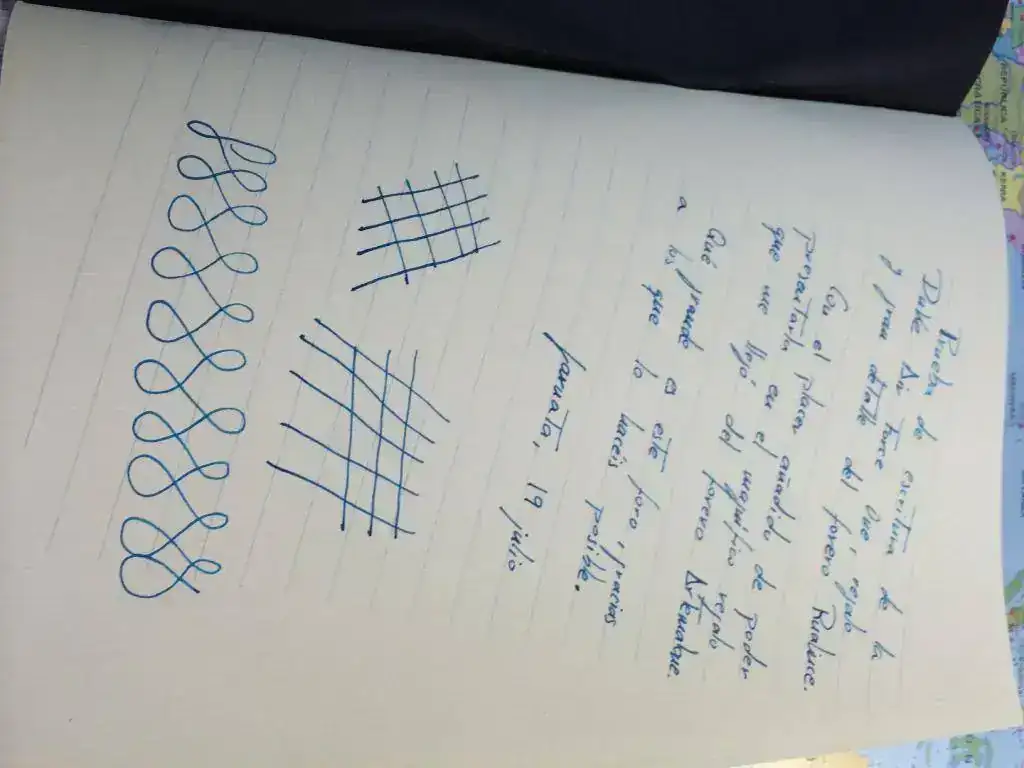 Prueba de escritura de la
Duke Art Force One, regalo
y gran detalle del forero Rudince.
Con el placer añadido de poder
presentarla en el
que me llegó del magnífico regalo
del forero
Qué grande es este foro, gracias
a los que lo hacéis posible.
19 julio